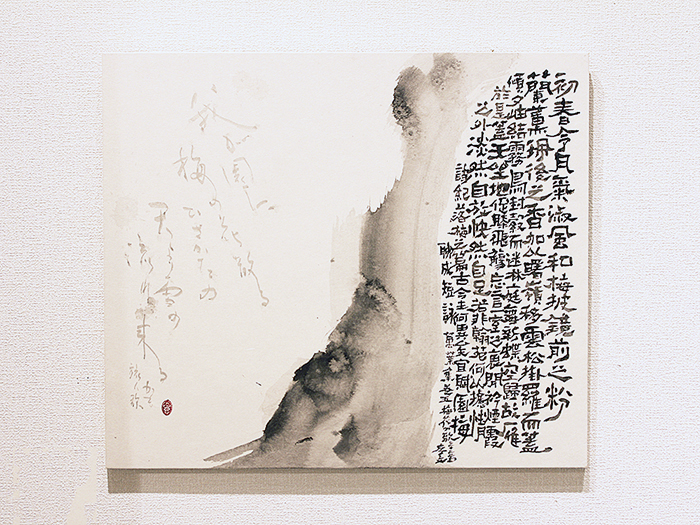 初春令月氣淑風和梅披鏡前之粉
蘭薫珮後之香加以曙嶺移雲松掛羅而蓋
傾夕岫結霧鳥封縠而迷林庭舞新蝶空歸故雁
於是蓋天坐地促膝飛觴忘言一室之裏開衿煙霞
之外淡然自放快然自足若非翰苑何以攄情
詩紀落梅之篇古今夫何異矣宜賦園梅
聊成短詠 萬葉集巻五 梅花歌
我が園に
梅の花散る
ひさかたの
天より雪の
流れ来る
かも